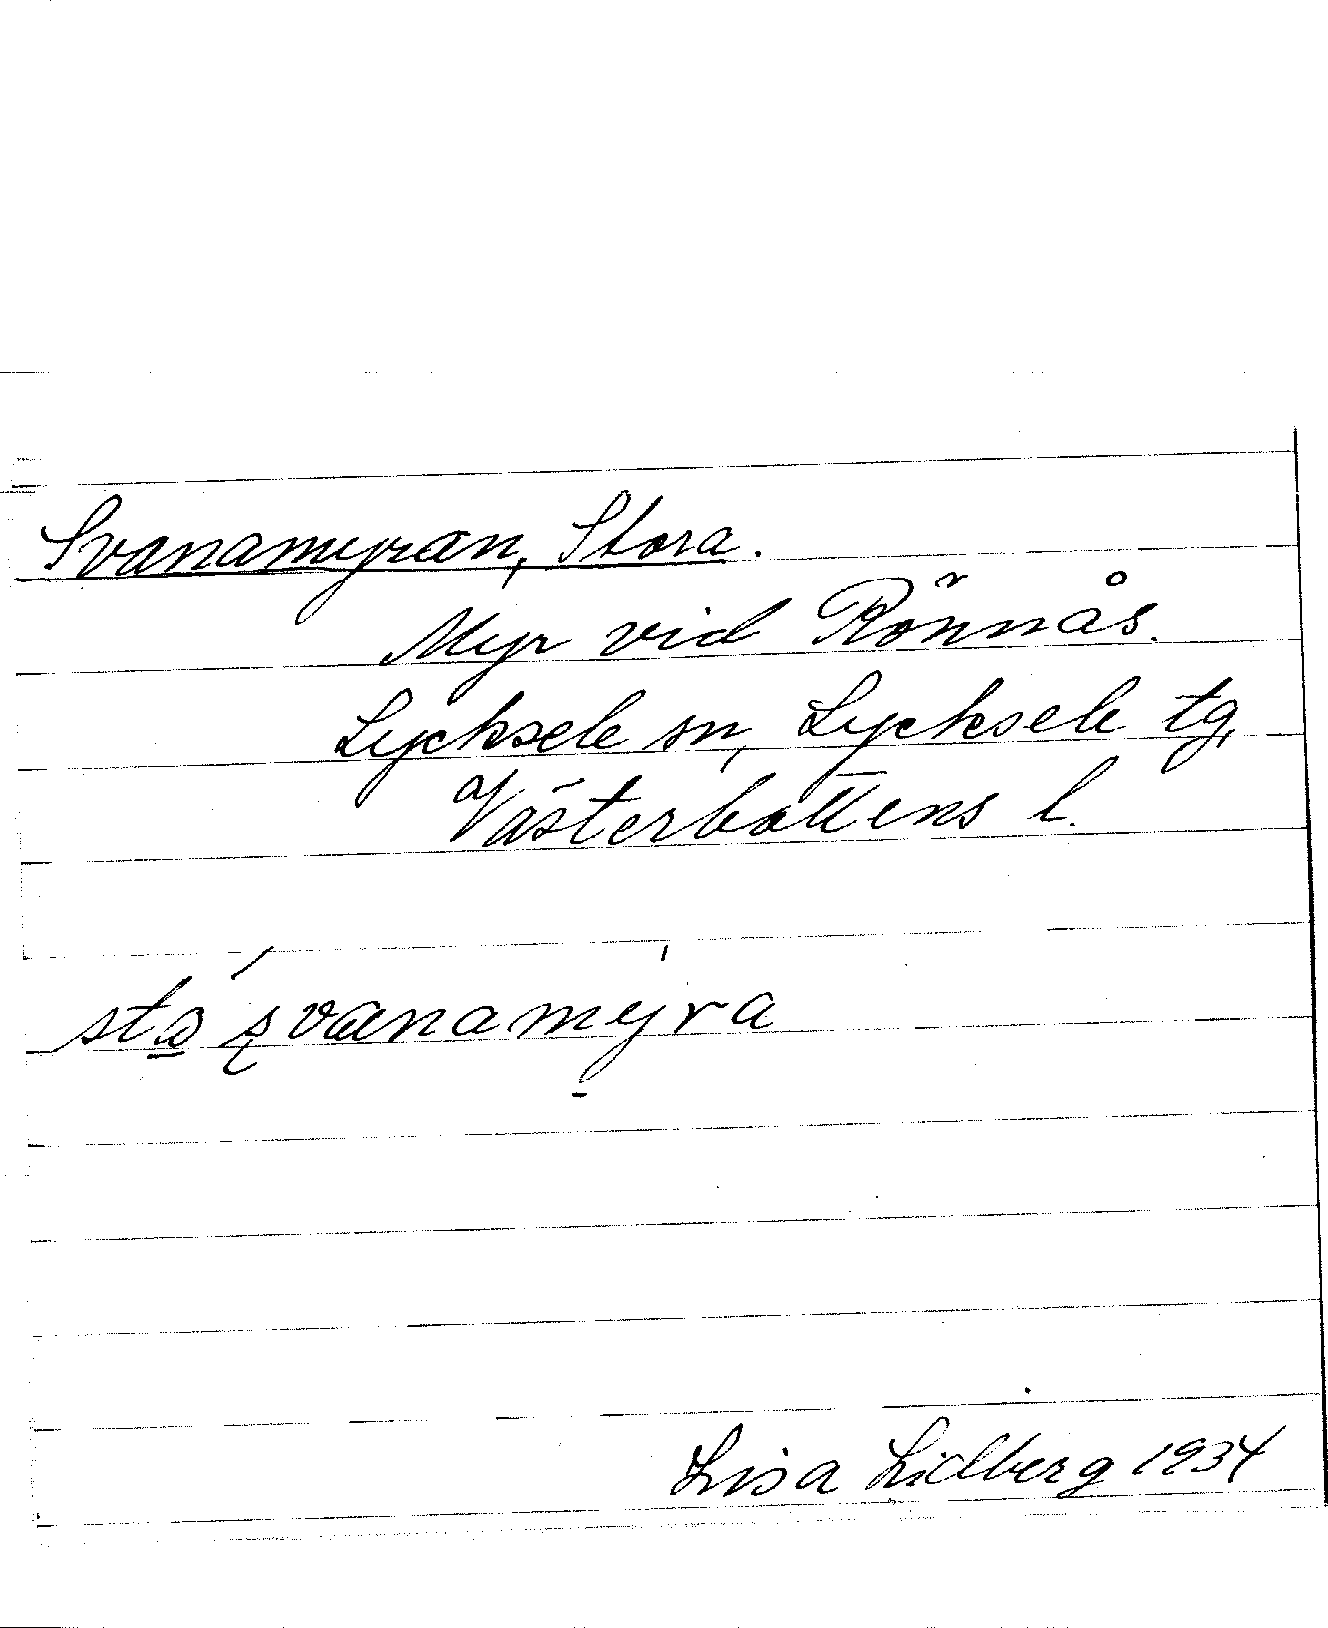 Svanamyran, Stora.
Myr vid Rönnås.
Lycksele sn, Lycksele tg,
Västerbottens l.
sto svanamyra
Lisa Lidberg 1934